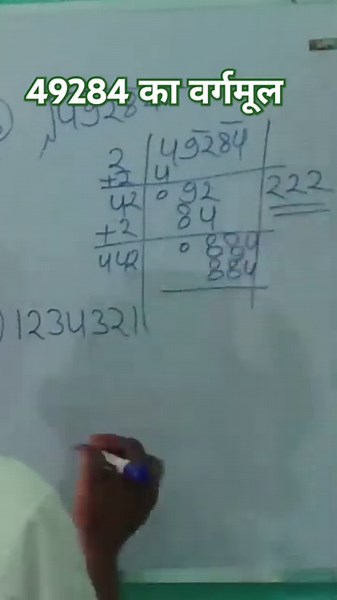 49284 का वर्गमूल
√49284
2 49284
+2 4
42 092 222
+2 84
442 0884
884
1234321